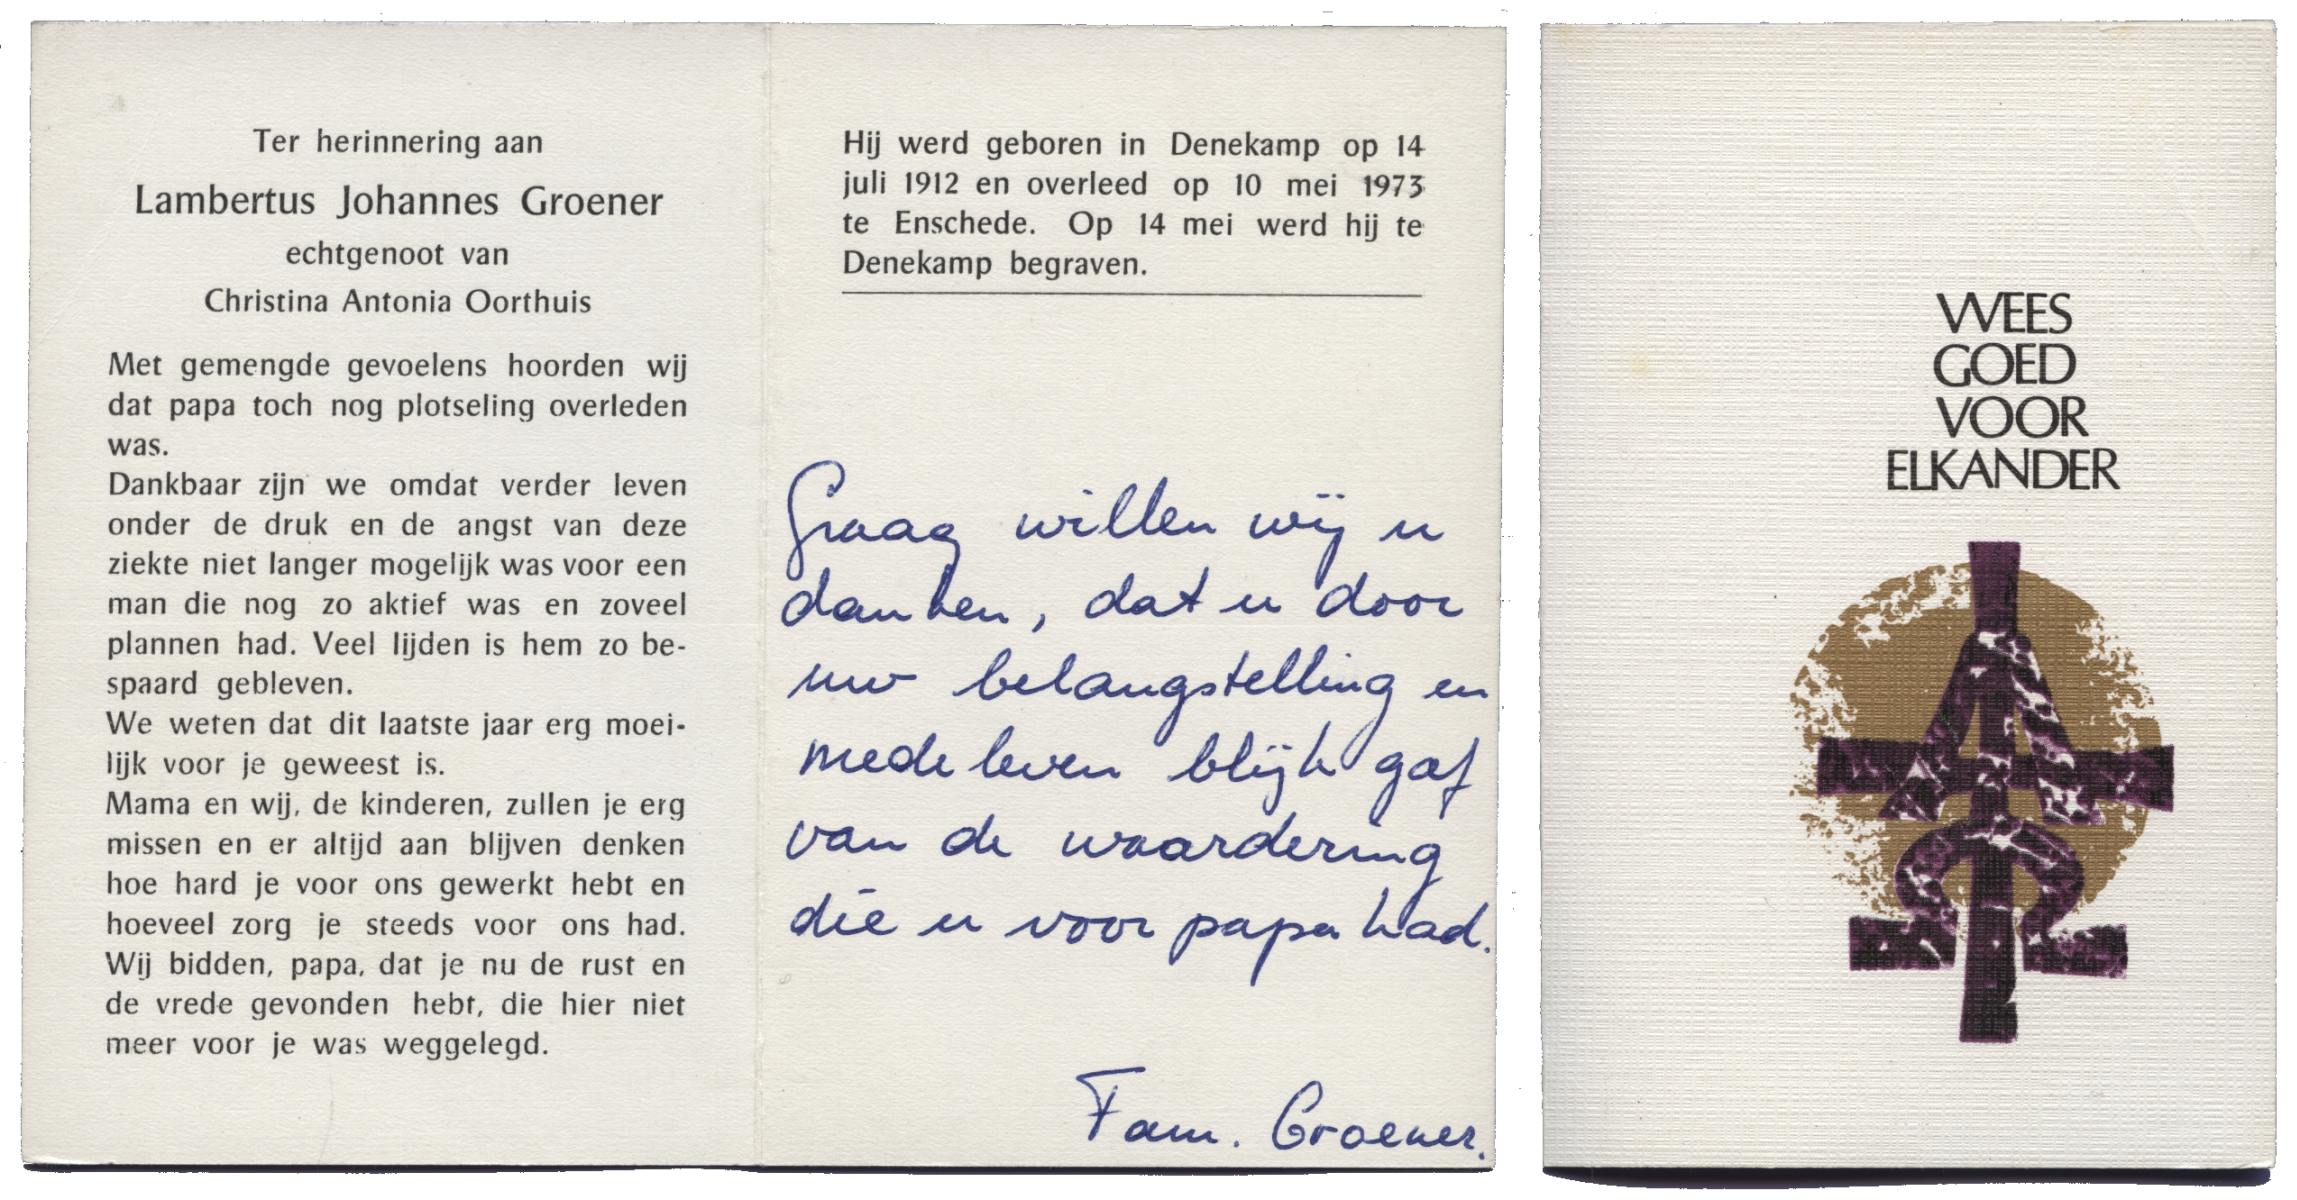 Ter herinnering aan
Lambertus Johannes Groener
echtgenoot van
Christina Antonia Oorthuis
Met gemengde gevoelens hoorden wij
dat papa toch nog plotseling overleden
was.
Dankbaar zijn we omdat verder leven
onder de druk en de angst van deze
ziekte niet langer mogelijk was voor een
man die nog zo aktief was en zoveel
plannen had. Veel lijden is hem zo be-
spaard gebleven.
We weten dat dit laatste jaar erg moei-
lijk voor je geweest is.
Mama en wij, de kinderen, zullen je erg
missen en er altijd aan blijven denken
hoe hard je voor ons gewerkt hebt en
hoeveel zorg je steeds voor ons had.
Wij bidden, papa, dat je nu de rust en
de vrede gevonden hebt, die hier niet
meer voor je was weggelegd.
Hij werd geboren in Denekamp op 14
juli 1912 en overleed op 10 mei 1973
te Enschede. Op 14 mei werd hij te
Denekamp begraven.
Graag willen wij u
danken, dat u door
uw belangstelling en
medeleven blijk gaf
van de waardering
die u voor papa had.
Fam. Groener.
WEES
GOED
VOOR
ELKANDER